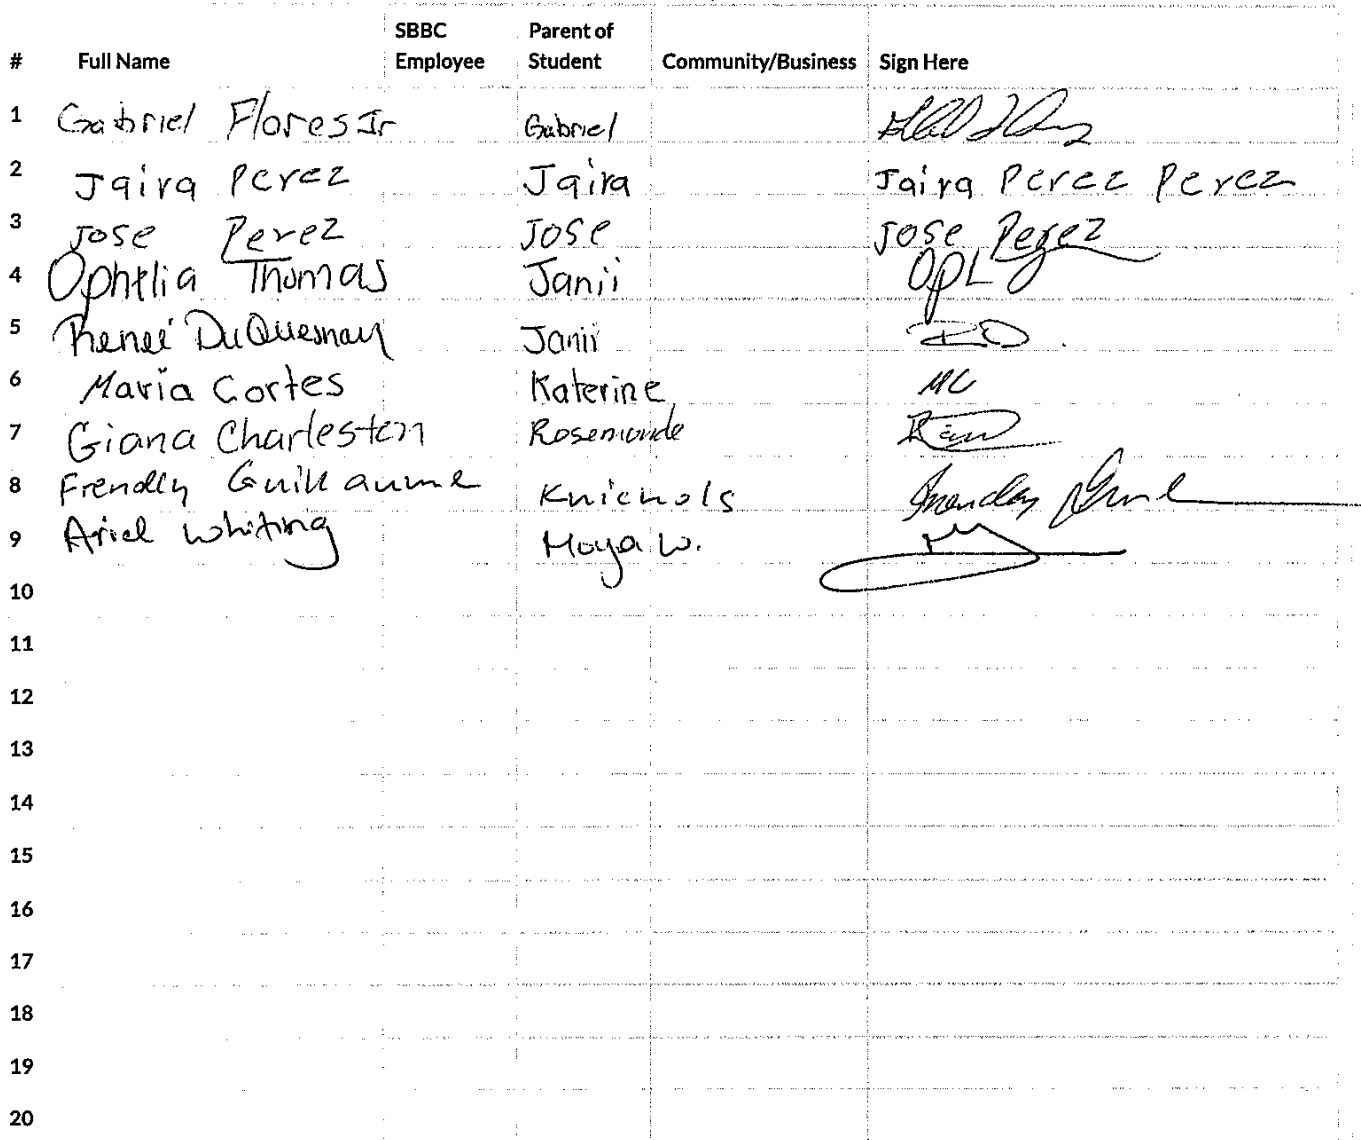 # Full Name SBBC Employee Parent of Student Community/Business Sign Here
1 Gabriel Flores Jr Gabriel
2 Jaira Perez Jaira Jaira Perez Perez
3 Jose Perez Jose Jose Perez
4 Ophelia Thomas Janii OpL
5 Reneé DuQuesnay Janii RD
6 Maria Cortes Katerine MC
7 Giana Charleston Rosemonde
8 Frendly Guillaume Knichols
9 Ariel Whiting Moya W.
10
11
12
13
14
15
16
17
18
19
20